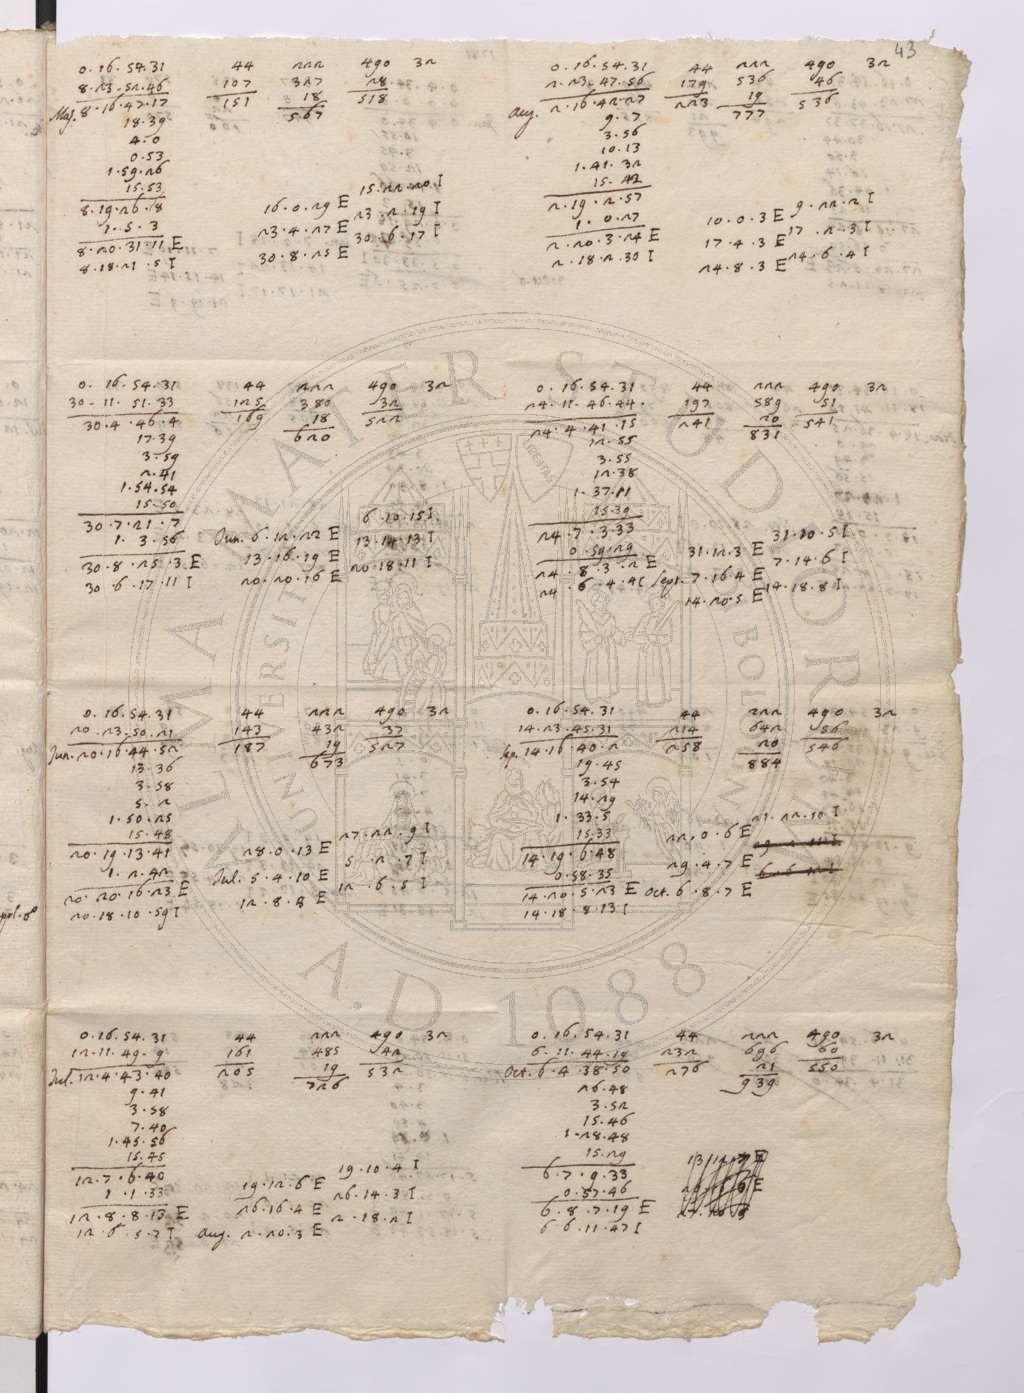 43
0. 16. 54. 31 44 222 490 32
8. 23. 52. 46 107 327 28
Maj. 8. 16. 47. 17 151 18 518
18. 39 567
4. 0
0. 53
1. 59. 26
15. 53
8. 19. 26. 18 15. 22. 20 I
1. 5. 3 16. 0. 29 E 23. 2. 19 I
8. 20. 31. 11 E 23. 4. 27 E 30. 6. 17 I
8. 18. 21. 5 I 30. 8. 25 E
0. 16. 54. 31 44 222 490 32
2. 23. 47. 56 179 536 46
aug. 2. 16. 42. 27 223 19 536
9. 7 777
3. 56
10. 13
1. 41. 32
15. 42
2. 19. 2. 57 9. 22. 2 I
1. 0. 27 10. 0. 3 E 17. 2. 3 I
2. 20. 3. 24 E 17. 4. 3 E 24. 6. 4 I
2. 18. 2. 30 I 24. 8. 3 E
0. 16. 54. 31 44 222 490 32
30. 11. 51. 33 125 380 32
30. 4. 46. 4 169 18 522
17. 39 620
3. 59
2. 41
1. 54. 54
15. 50
30. 7. 21. 7 6. 10. 15 I
1. 3. 56 Jun. 6. 12. 22 E 13. 14. 13 I
30. 8. 25. 3 E 13. 16. 19 E 20. 18. 11 I
30. 6. 17. 11 I 20. 20. 16 E
0. 16. 54. 31 44 222 490 32
24. 11. 46. 44 197 589 51
24. 4. 41. 15 241 20 541
12. 55 831
3. 55
12. 38
1. 37. 11
15. 39
24. 7. 3. 33 31. 10. 5 I
0. 59. 29 31. 12. 3 E 7. 14. 6 I
24. 8. 3. 2 E Sept. 7. 16. 4 E 14. 18. 8 I
24. 6. 4. 4 I 14. 20. 5 E
0. 16. 54. 31 44 222 490 32
20. 23. 50. 21 143 432 37
Jun. 20. 16. 44. 52 187 19 527
13. 36 673
3. 58
5. 2
1. 50. 25
15. 48 27. 22. 9 I
20. 19. 13. 41 28. 0. 13 E 5. 2. 7 I
1. 2. 42 Jul. 5. 4. 10 E 12. 6. 5 I
20. 20. 16. 23 E 12. 8. 8 E
20. 18. 10. 59 I
0. 16. 54. 31 44 222 490 32
14. 23. 45. 31 214 642 56
Sep. 14. 16. 40. 2 258 20 546
19. 45 884
3. 54
14. 29
1. 33. 5
15. 33 21. 22. 10 I
14. 19. 6. 48 22. 0. 6 E
0. 58. 35 29. 4. 7 E
14. 20. 5. 23 E Oct. 6. 8. 7 E
14. 18. 8. 13 I
0. 16. 54. 31 44 222 490 32
12. 11. 49. 9 161 485 42
Jul. 12. 4. 43. 40 205 19 532
9. 41 726
3. 58
7. 40
1. 45. 56
15. 45
12. 7. 6. 40 19. 10. 4 I
1. 1. 33 19. 12. 6 E 26. 14. 3 I
12. 8. 8. 13 E 26. 16. 4 E 2. 18. 2 I
12. 6. 5. 7 I aug. 2. 20. 3 E
0. 16. 54. 31 44 222 490 32
6. 11. 44. 19 232 696 60
Oct. 6. 4. 38. 50 276 21 550
26. 48 939
3. 52
15. 46
1. 28. 48
15. 29
6. 7. 9. 33
0. 57. 46
6. 8. 7. 19 E
6. 6. 11. 47 I
ALMA MATER STUDIORUM
UNIVERSITÀ DI BOLOGNA
A.D. 1088